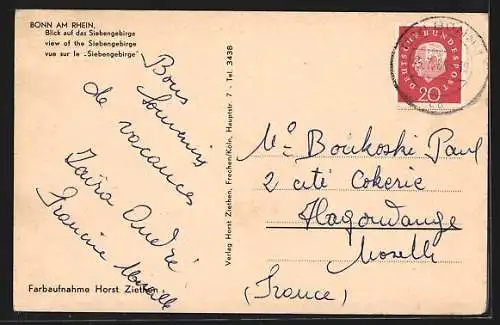 BONN AM RHEIN,
Blick auf das Siebengebirge
view of the Siebengebirge
vue sur le „Siebengebirge"
Bons
Souvenirs
de vacances
Zaïra André
Francine
Farbaufnahme Horst Ziethen
Verlag Horst Ziethen, Frechen/Köln, Hauptstr. 7 - Tel. 3438
DEUTSCHE BUNDESPOST
20
Mr Boukoski Paul
2 cité Cokerie
Hagondange
Moselle
(France)